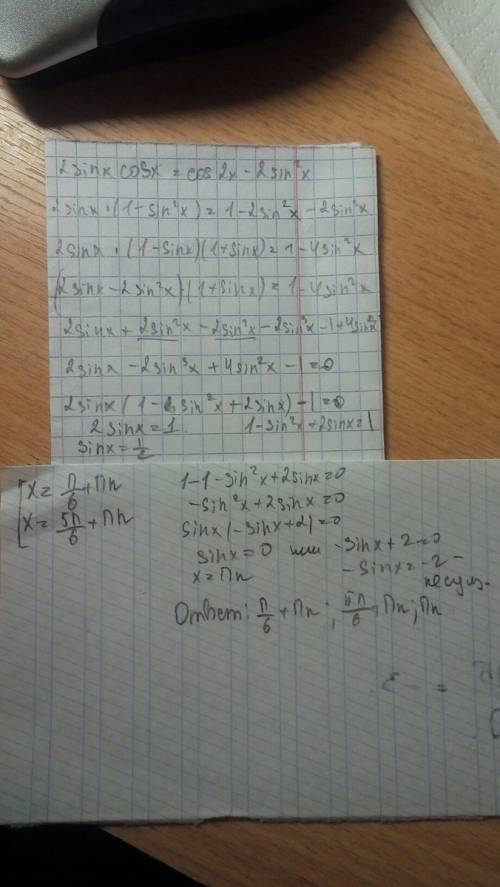 2sinx cosx = cos2x - 2sin²x
2sinx · (1+sin²x) = 1-2sin²x - 2sin²x
2sinx · (1-sinx)(1+sinx) = 1-4sin²x
(2sinx - 2sin²x)·(1+sinx) = 1-4sin²x
2sinx + 2sin²x - 2sin²x - 2sin³x - 1 + 4sin²x
2sinx - 2sin³x + 4sin²x - 1 = 0
2sinx (1 - sin²x + 2sinx) - 1 = 0
2sinx = 1 1-sin²x + 2sinx = 1
sinx = 1/2
x = П/6 + Пn
x = 5П/6 + Пn
1-1-sin²x + 2sinx = 0
-sin²x + 2sinx = 0
sinx (-sinx + 2) = 0
sinx = 0 или -sinx + 2 = 0
x = Пn -sinx = -2 -
Ответ: П/6 + Пn ; 5П/6 + Пn ; Пn